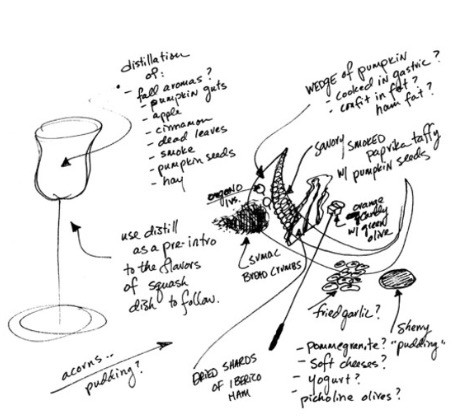 distillation
of:
- fall aromas?
- pumpkin guts
- apple
- cinnamon
- dead leaves
- smoke
- pumpkin seeds
- hay
use distill
as a pre-intro
to the flavors
of squash
dish to follow.
acorns..
pudding?
WEDGE of pumpkin
- cooked in gastric?
- confit in fat?
ham fat?
SAVORY SMOKED
paprika taffy
w/ pumpkin seeds
oregano
lvs.
orange
candy
w/ green
olive
SUMAC
BREAD CRUMBS
fried garlic?
Sherry
"pudding"
DRIED SHARDS
OF IBERICO
HAM
- pommegrinite?
- Soft cheeses?
- yogurt?
- picholine olives?